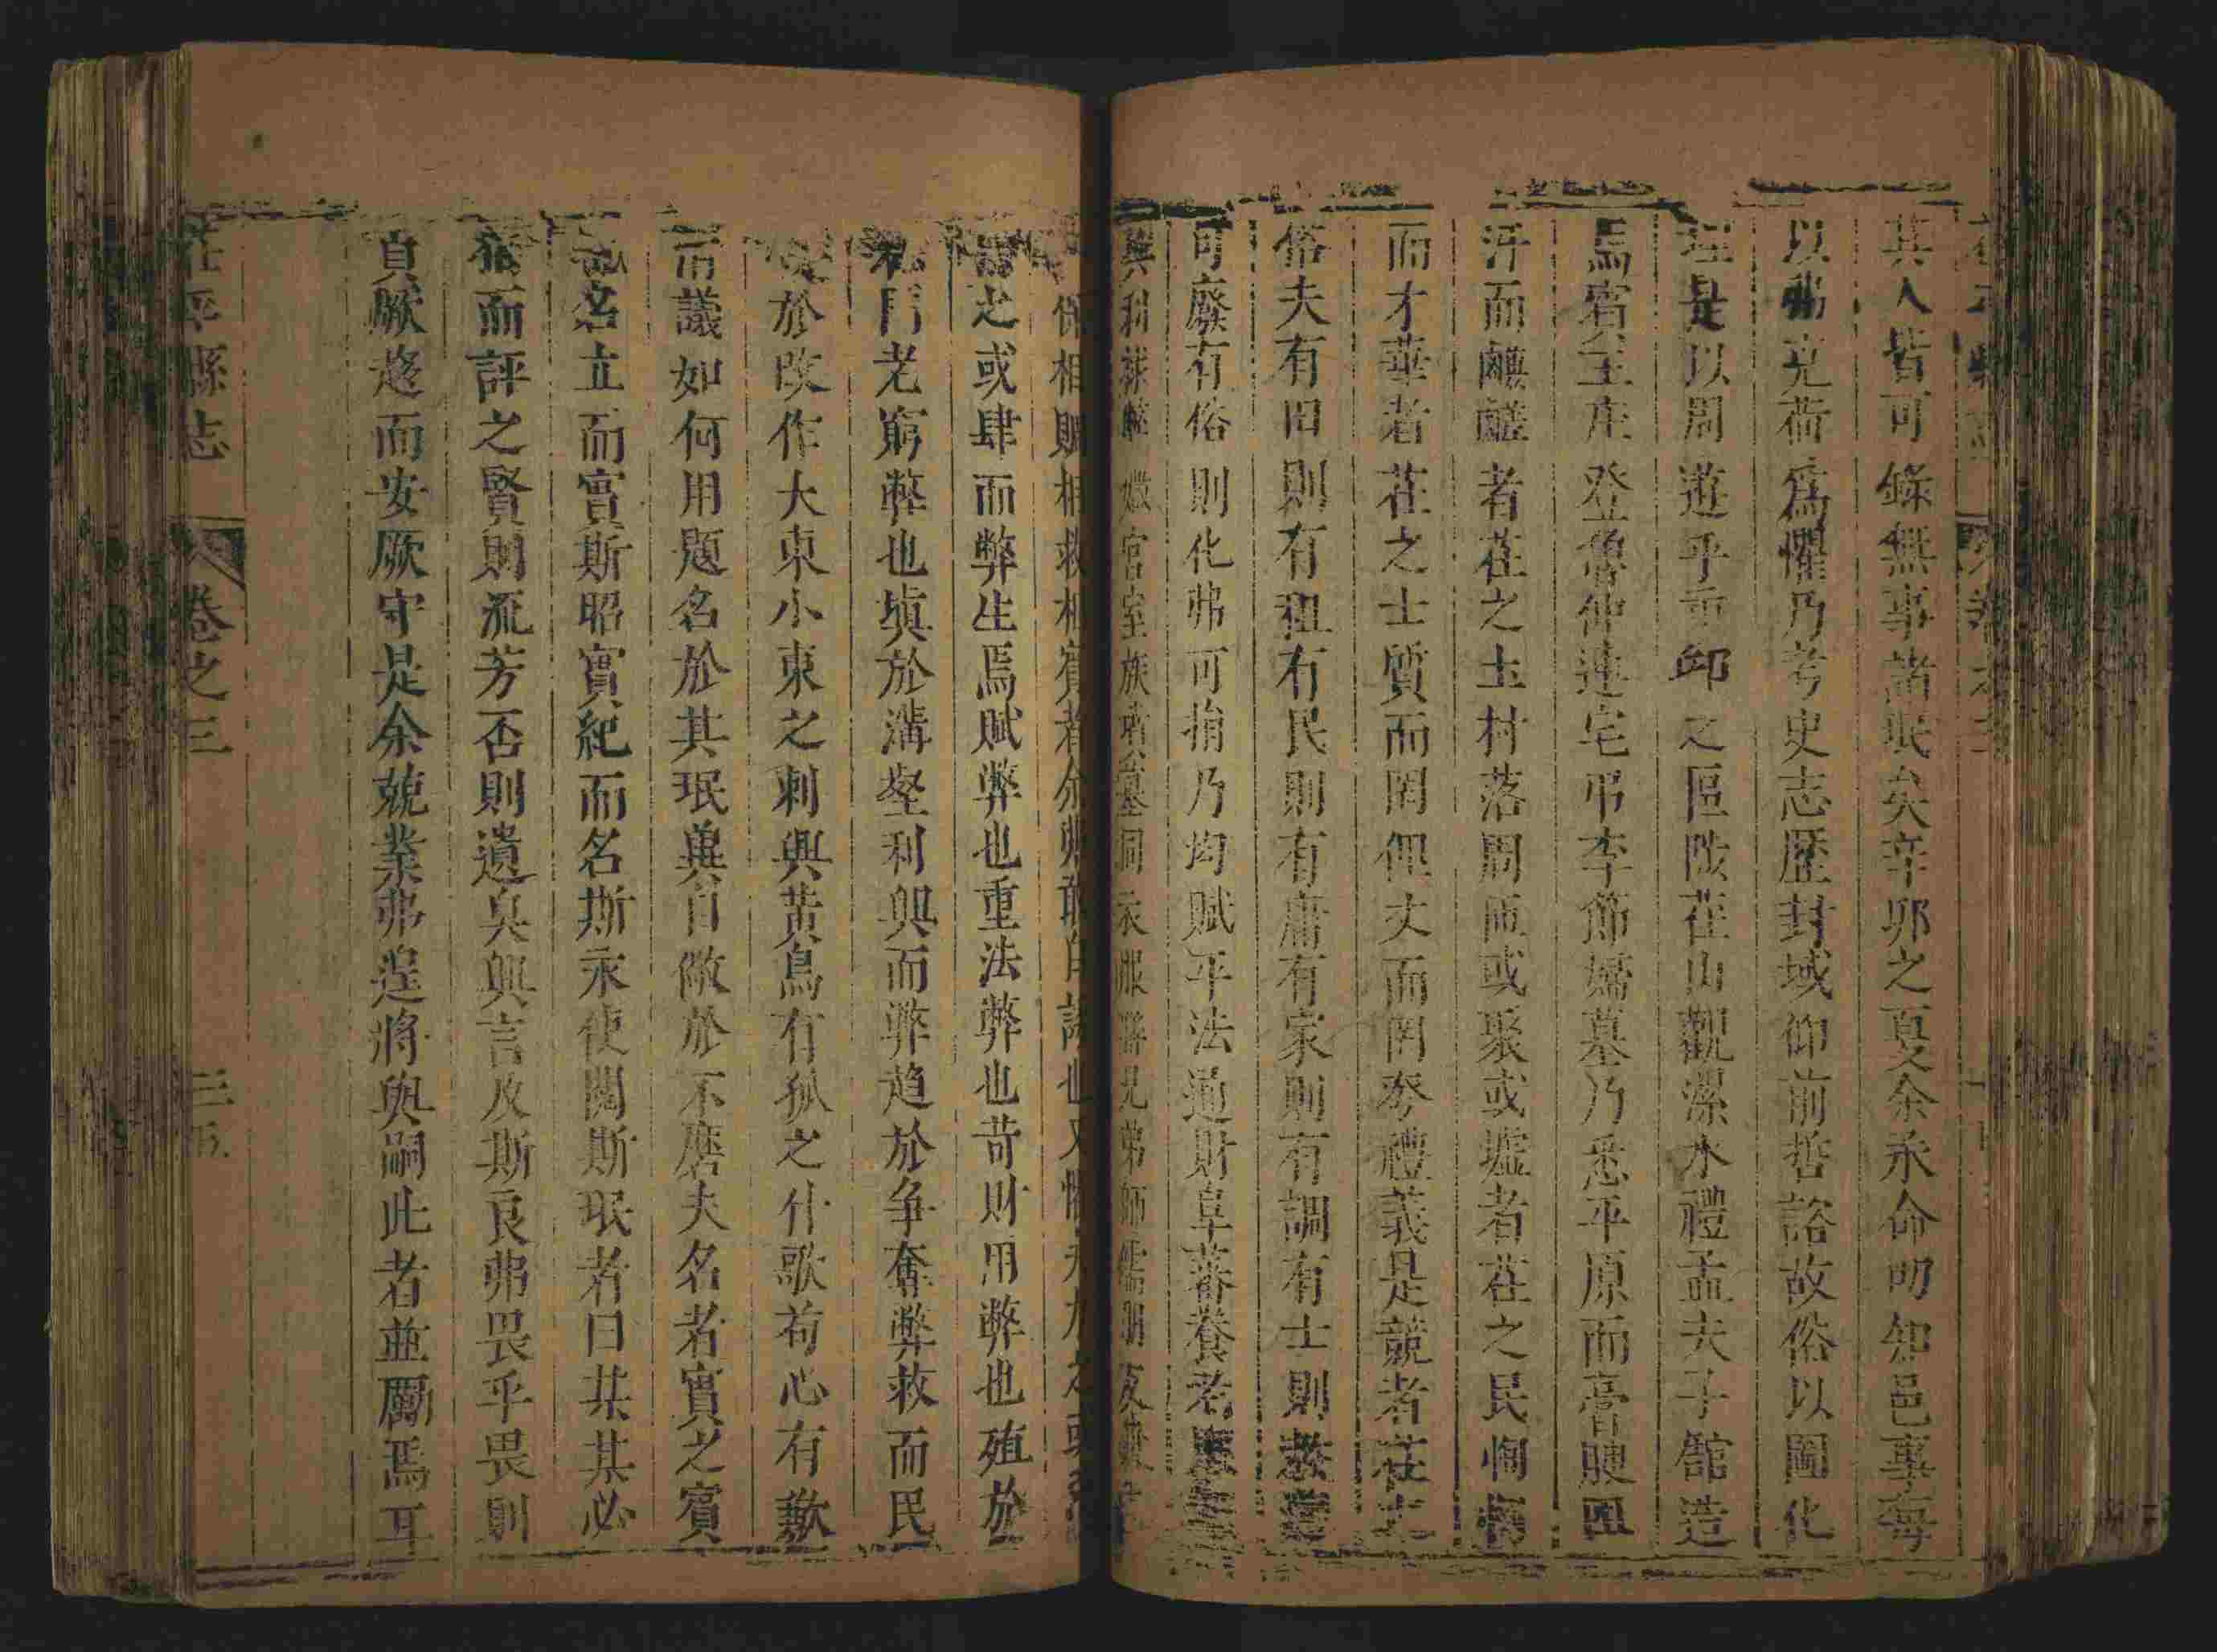 其人皆可錄無事諸珉矣辛卯之夏余承命叨知邑事每
以弗克荷爲懼乃考史志歷封域仰前哲諮故俗以圖化
理是以周遊乎重邱之區陟茌山觀漯水禮孟夫子館造
馬宿主庄登魯仲連宅弔李節婦墓乃悉平原而膏腴
汙而鹻鹺者茌之土村落周匝或聚或墟者茌之民
而才華者茌之士質而罔俚文而罔奓禮義是競者茌
俗夫有田則有租有民則有庸有家則有調有士則教
可廢有俗則化弗可捐乃均賦平法通財阜蕃養老
興利 宮室族墳墓同衣服聯兄弟師儒朋友
保相賙相救相賓者余
之或肆而弊生焉賦弊也重法弊也苛財用弊也殖於
門老窮弊也塡於溝壑利興而弊趋於争奪弊救而民
於改作大東小東之刺興黃鳥有孤之什歌苟心有歉
而議如何用題名於其珉奠自儆於不磨夫名者實之賓
名立而實斯昭實紀而名斯永使閱斯珉者曰某某必
而評之賢則流芳否則遺臭興言及斯良弗畏乎畏則
貞厥趨而安厥守是余兢業弗遑將與嗣此者並勵焉耳
茌平縣志 卷之三 三五